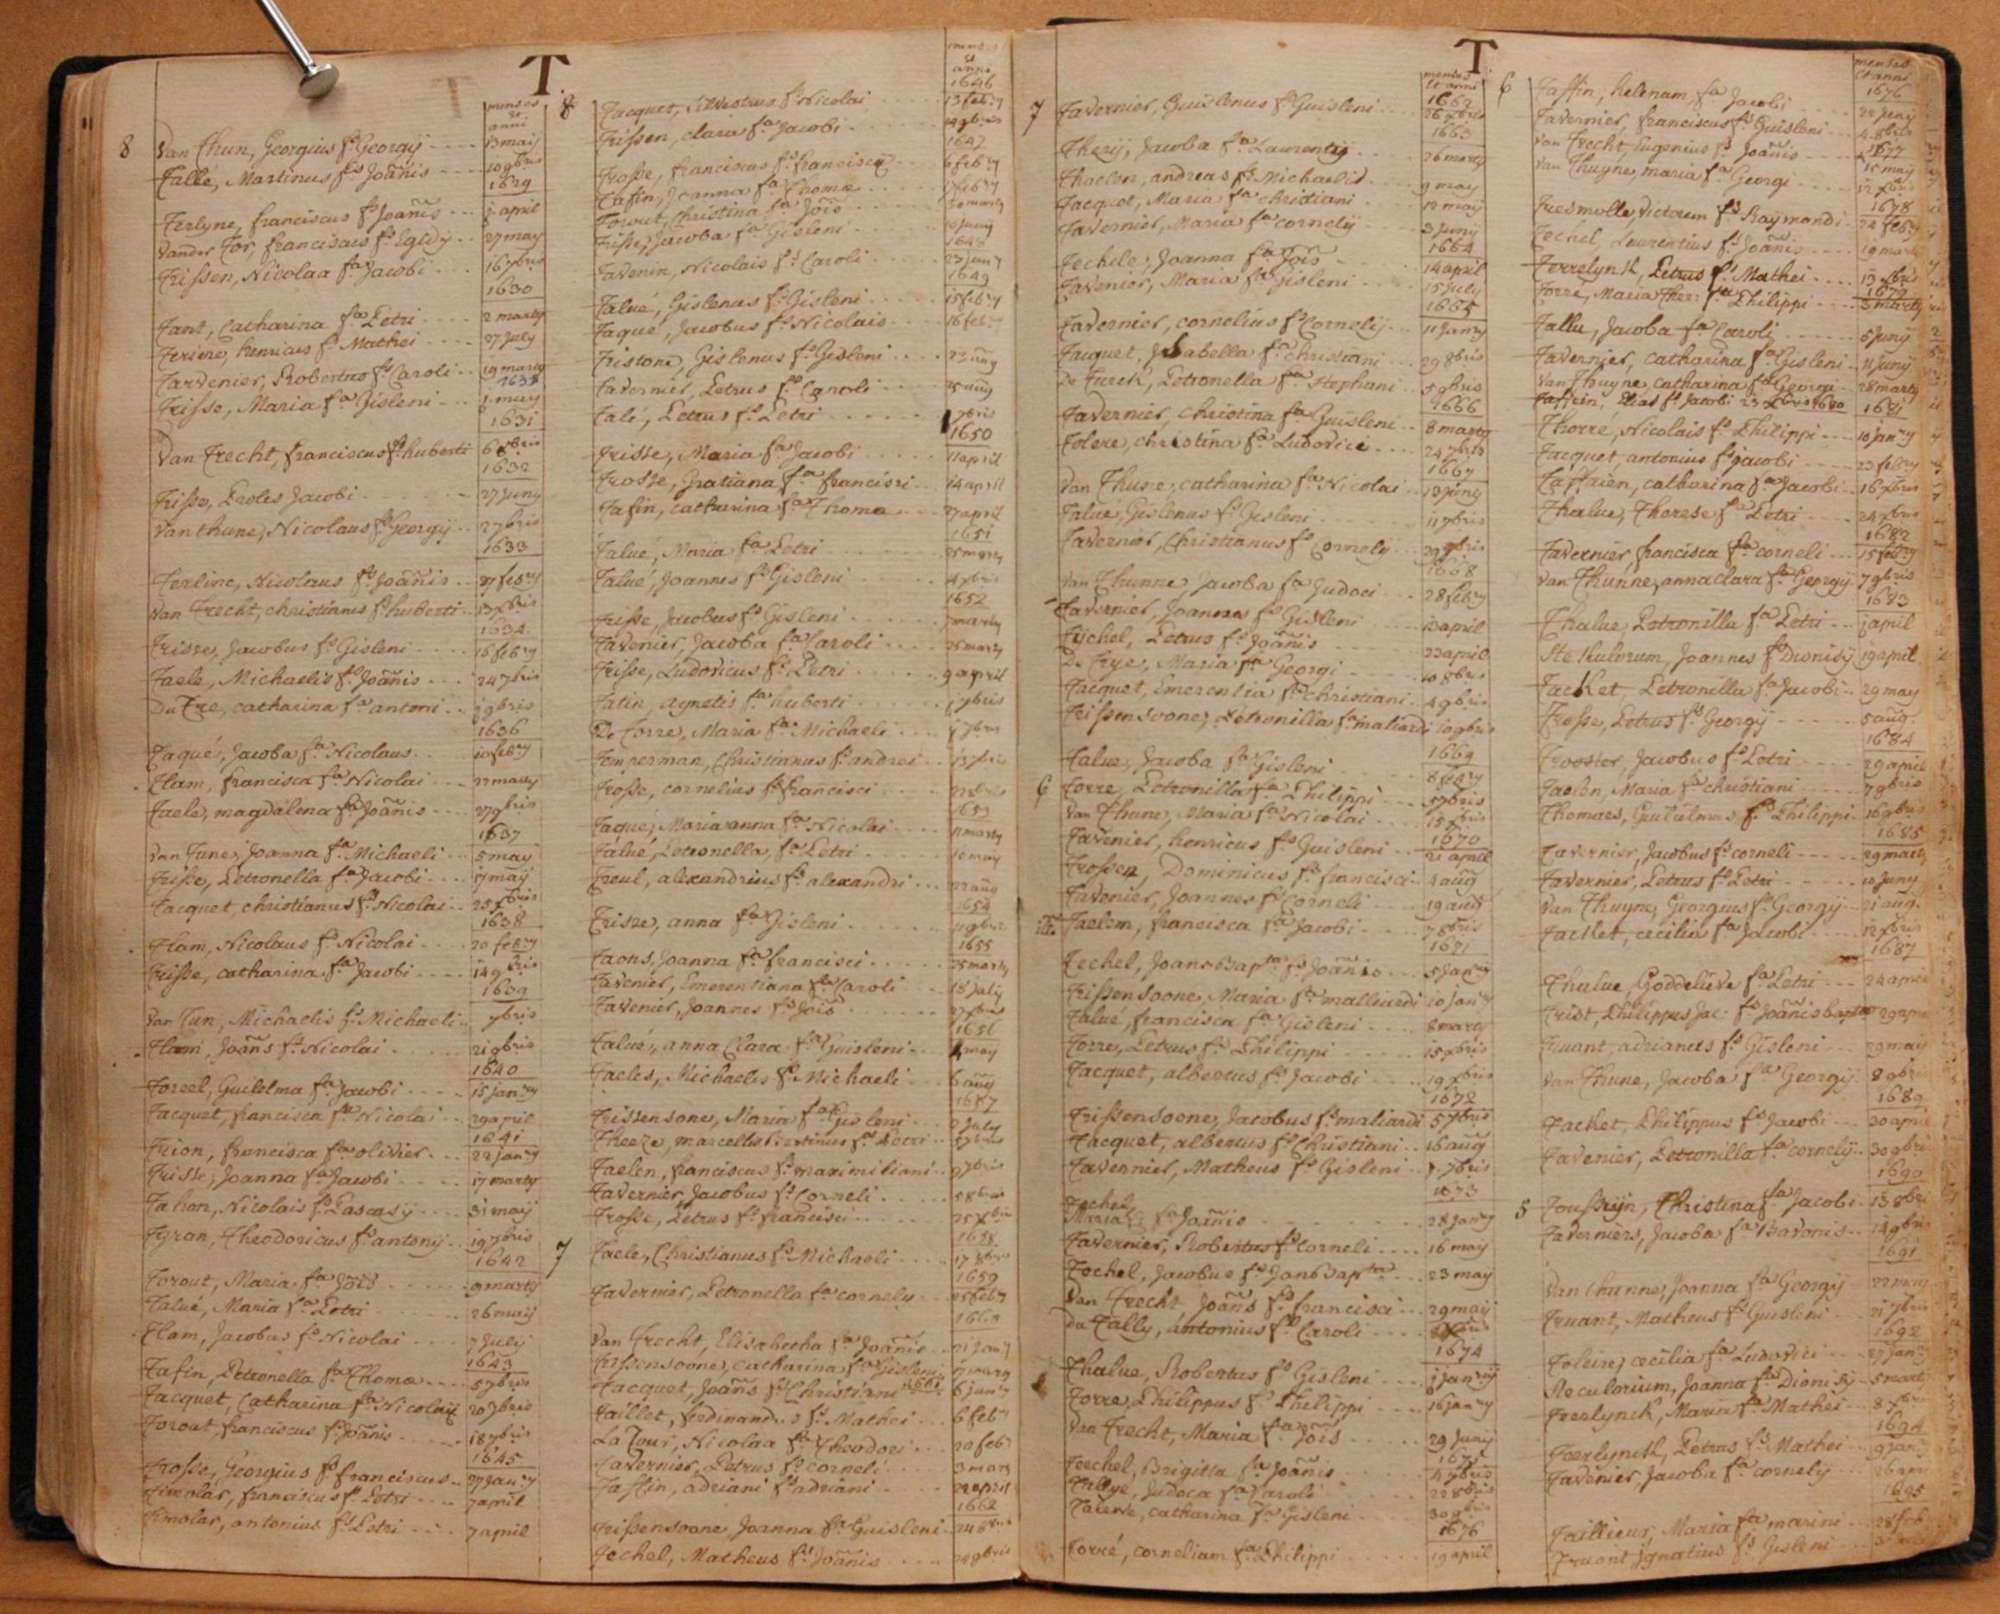 T.
menses
et
anni
8 Van Thun, Georgius fs Georgij 13 maij
Tallé, Martinus fs Joañis 10 9bris
1629
Terlyne, franciscus fs Joañis april
Vander Tor, franciscus fs Egidy 27 may
Trissen, Nicolaa fa Jacobi 16 7bris
1630
Tant, Catharina fa Petri 2 marty
Teriere, henricus fs Mathei 27 July
Tarvenier, Robertus fs Caroli 19 marty
Trisse, Maria fa Gisleni may
1631
Van Trecht, franciscus fs huberti
1632
Trisse, Proles Jacobi 27 Juny
Van thune, Nicolaus fs Georgij 2 7bris
1633
Terlinc, Nicolaus fs Joañis feb
Van Trecht, christianus fs huberti 13 xbris
1634
Trisse, Jacobus fs Gisleni 16 feb
Taele, Michaelis fs Joañis 24 7bris
Du Tre, catharina fa antoni 9bris
1636
Taqué, Jacoba fa Nicolaus 10 feb
Tlam, francisca fa Nicolai 22 marty
Taele, magdalena fa Joañis 27 9bris
1637
Van Tune, Joanna fa Michaeli 5 may
Trisse, Petronella fa Jacobi 17 maij
Tacquet, christianus fs Nicolai 25 xbris
1638
Tlam, Nicolaus fs Nicolai 20 feb
Trisse, catharina fa Jacobi 14 9bris
1639
Van Tun, Michaelis fs Michaeli 7bris
Tlam, Joañs fs Nicolai 21 9bris
1640
Toreel, Guilelma fa Jacobi 15 jan
Tacquet, francisca fa Nicolai 29 april
1641
Trion, francisca fa olivier 22 jan
Trisse, Joanna fa Jacobi 17 marty
Tahon, Nicolais fs Pascasy 31 maij
Tyran, Theodoricus fs antonij 19 7bris
1642
Torout, Maria fa Jõis 9 marty
Talué, Maria fa Petri 26 maij
Tlam, Jacobus fs Nicolai 7 July
1643
Tafin, Petronella fa Thomæ 5 7bris
Tacquet, Catharina fa Nicolai 20 7bris
Torout, franciscus fs Joañis 18 7bris
1645
Trosse, Georgius fs franciscus 27 Jan
Timolar, franciscus fs Petri 7 april
Timolar, antonius fs Petri 7 april
menses
et
anni
1646
8 Tacquet, Silvestrus fs Nicolai 13 feb
Trissen, clara fa Jacobi 9bris
1647
Trosse, franciscus fs francisci 6 feb
Taffin, Joanna fa Thomæ feb
Torout, Christina fa Jõis marty
Trisse, Jacoba fa Gisleni Junij
1648
Tavenin, Nicolais fs Caroli 23 jan
1649
Talué, Gislenus fs Gisleni 15 feb
Taque, Jacobus fs Nicolais 16 feb
Tristone, Gislenus fs Gisleni 23
Tavernier, Petrus fs Caroli 25 aug
Talé, Petrus fs Petri 7bris
1650
Trisse, Maria fa Jacobi 11 april
Trosse, Gratiana fa francisci 14 april
Tafin, catharina fa Thomæ 27 april
1651
Talué, Maria fa Petri 25 marty
Talué, Joannes fs Gisleni 4 xbris
1652
Trisse, Jacobus fs Gisleni marty
Tavenier, Jacoba fa Caroli 26 marty
Trisse, Ludovicus fs Petri 9 april
Tatin, agnetis fa huberti 7bris
De Torre, Maria fa Michaeli 7bris
Temperman, Christianus fs andrei 13 xbris
Trosse, cornelius fs francisci
1653
Taque, Maria anna fa Nicolai 11 marty
Talué, Petronella fa Petri 10 may
Treul, alexandrius fs alexandri 22 aug
1654
Trisse, anna fa Gisleni 11 9bris
1655
Taons, Joanna fa francisci 25 marty
Tavenier, Emerentiana fa Caroli 18 July
Tavenier, Joannes fs Jõis 27 xbris
1656
Talué, anna Clara fa Guisleni may
Taeles, Michaelis fs Michaeli 6 aug
1657
Trissensone, Maria fa Gisleni 2 July
Theeze, marcellis Bertinus fs Petri 7bris
Taelen, franciscus fs maximiliani 27bris
Tavernier, Jacobus fs Corneli 5 8bris
Trosse, Petrus fs francisci 25 xbris
1658
7 Taele, Christianus fs Michaeli 17 8bris
1659
Tavernier, Petronella fa cornely 25 feb
1660
Van Trecht, Elisabetha fa Joañis 21 Jan
Trissensoone, catharina fa Gisleni 17 marty
Tacquet, Joañs fs Christiani 1661 6 jan
Taillet, ferdinandus fs Mathei 6 feb
La Tour, Nicolaa fa Theodori 20 feb
Tavernier, Petrus fs corneli 3 mars
Taffin, adriani fs adriani 22 april
1662
Trissensoone Joanna fa Guisleni 24 8bris
Techel, Matheus fs Joañis 24 9bris
T.
menses
et anni
1662
7 Tavernier, Guislenus fs Guisleni 26 xbris
1663
Thery, Jacoba fa Laurentij 26 marty
Thaelen, andreas fs Michaelis 9 may
Tacquet, Maria fa christiani 12 may
Tavernier, Maria fa cornely 3 Juny
1664
Techele, Joanna fa Jõis 14 april
Tavenier, Maria fa Gisleni 15 july
1665
Tavernier, cornelius fs Cornelij 11 Jan
Tacquet, Jsabella fa christiani 29 8bris
De Turck, Petronella fa stephani 5 9bris
1666
Tavernier, christina fa Guisleni 8 marty
Tolere, christina fa Ludovici 24 7bris
1667
Van Thune, catharina fa Nicolai 13 juny
Talue, Gislenus fs Gisleni 11 7bris
Tavernier, Christianus fs Cornely 29 9bris
1668
Van Thunne, Jacoba fa Judoci 28 feb
Tavernier, Joannes fs Gisleni 10 april
Tichel, Petrus fs Joañis 23 april
De Trye, Maria fa Georgi 10 8bris
Tacquet, Emerentia fa christiani 4 9bris
Trissensoone, Petronilla fa maliardi 10 9bris
1669
Talue, Jacoba fa Gisleni 8 feb
6 Torre, Petronilla fa Philippi 7bris
Van Thune, Maria fa Nicolai 15 xbris
1670
Tavenier, henricus fs Guisleni 21 april
Trossen, Dominicus fs francisci 4 aug
Tavenier, Joannes fs Corneli 19 aug
Taelem, francisca fa Jacobi 7 8bris
1671
Techel, Joans Bapta fs Joañis 5 Jan
Trissensoone, Maria fa malliardi 10 jan
Talué, francisca fa Gisleni 8 marty
Torre, Petrus fs Philippi 15 xbris
Tacquet, albertus fs Jacobi 19 xbris
1672
Trissensoone, Jacobus fs maliardi 5 7bris
Tacquet, albertus fs Christiani 16 aug
Tavernier, Matheus fs Gisleni 7bris
1673
Techel
Maria fa Joañis 28 Jan
Tavernier, Robertus fs corneli 16 may
Techel, Jacobus fs Jans Bapta 23 may
Van Trecht Joañs fs francisci 29 maij
Du Tally, antonius fs Caroli xbris
1674
Thalue, Robertus fs Gisleni jan
Torre, Philippus fs Philippi 16 jan
Van Trecht, Maria fa Jõis 29 Juny
1675
Teechel, Brigitta fa Joañis 4 7bris
Judoca fa Caroli 22 8bris
catharina fa Gisleni 30 9bris
1676
Torré, corneliam fa Philippi 19 april
menses
et anni
1676
6 Taffin, helenam, fa Jacobi 22 juny
Tavernier franciscus fs Guisleni 4 8bris
1677
Van Trecht, Eugenius fs Joañis 15 may
Van Thuyne, maria fa Georgi 12 xbris
1678
Tresmolle, Victorum fs Raymondi 24 feb
Techel, Laurentius fs Joañis 19 marty
Terrelynck, Petrus fs Mathei 13 xbris
1679
Torre, Maria Ther: fa Philippi 3 marty
Tallu, Jacoba fa Caroli 5 junij
Tavernier, catharina fa Gisleni 11 junij
Van Thuyne catharina fa Georgi 28 marty
Taffein, Elias fs Jacobi 23 xbris 1680 1681
Thorré, Nicolais fs Philippi 10 jan
Tacquet, antonius fs jacobi 23 feb
Taffaien, catharina fa Jacobi 16 xbris
Thalue, Therese fa Petri 24 xbris
1682
Tavernier, francisca fa corneli 15 feb
Van Thunne, anna clara fa Georgij 7 9bris
1683
Thalue, Petronilla fa Petri april
Ste Kulorum, Joannes fs Dionisij 19 april
Tacket, Petronilla fa Jacobi 29 may
Trosse, Petrus fs Georgij 5 aug.
1684
Trooster, Jacobus fs Petri 29 april
Taelen, Maria fa christiani 7 9bris
Thomaes, Guilielmus fs Philippi 16 9bris
1685
Tavernier, Jacobus fs corneli 29 marty
Tavernier, Petrus fs Petri 10 Juny
Van Thuyne, Georgius fs Georgij 21 aug.
Tacket, cecilia fa Jacobi 12 xbris
1687
Thalue, Goddelieve fa Petri 24 april
Trist, Philippus Jac: fs Joañis bapta
Truant, adrianus fs Gisleni 29 may
Van Thune, Jacoba fa Georgij 8 9bris
1689
Tacket, Philippus fs Jacobi 30 april
Tavenier, Petronilla fa cornelij 30 9bris
1690
5 Christina fa Jacobi 13 8bris
Taverniers, Jacoba fa Bavonis 14 9bris
1691
Van thunne, Joanna fa Georgij 22 may
Truant, Matheus fs Guisleni 21 7bris
1692
Toleire, cecilia fa Ludovici 27 jan
Reculorium, Joanna fa Dionisij 5 mart
Treelynck, Maria fa Mathei 8 xbris
1694
Teerlynck, Petrus fs Mathei 9 jan
Tavenier, Jacoba fa cornely
1695
Taillieur, Maria fa marini 28 feb
Truant ignatius fs Gisleni